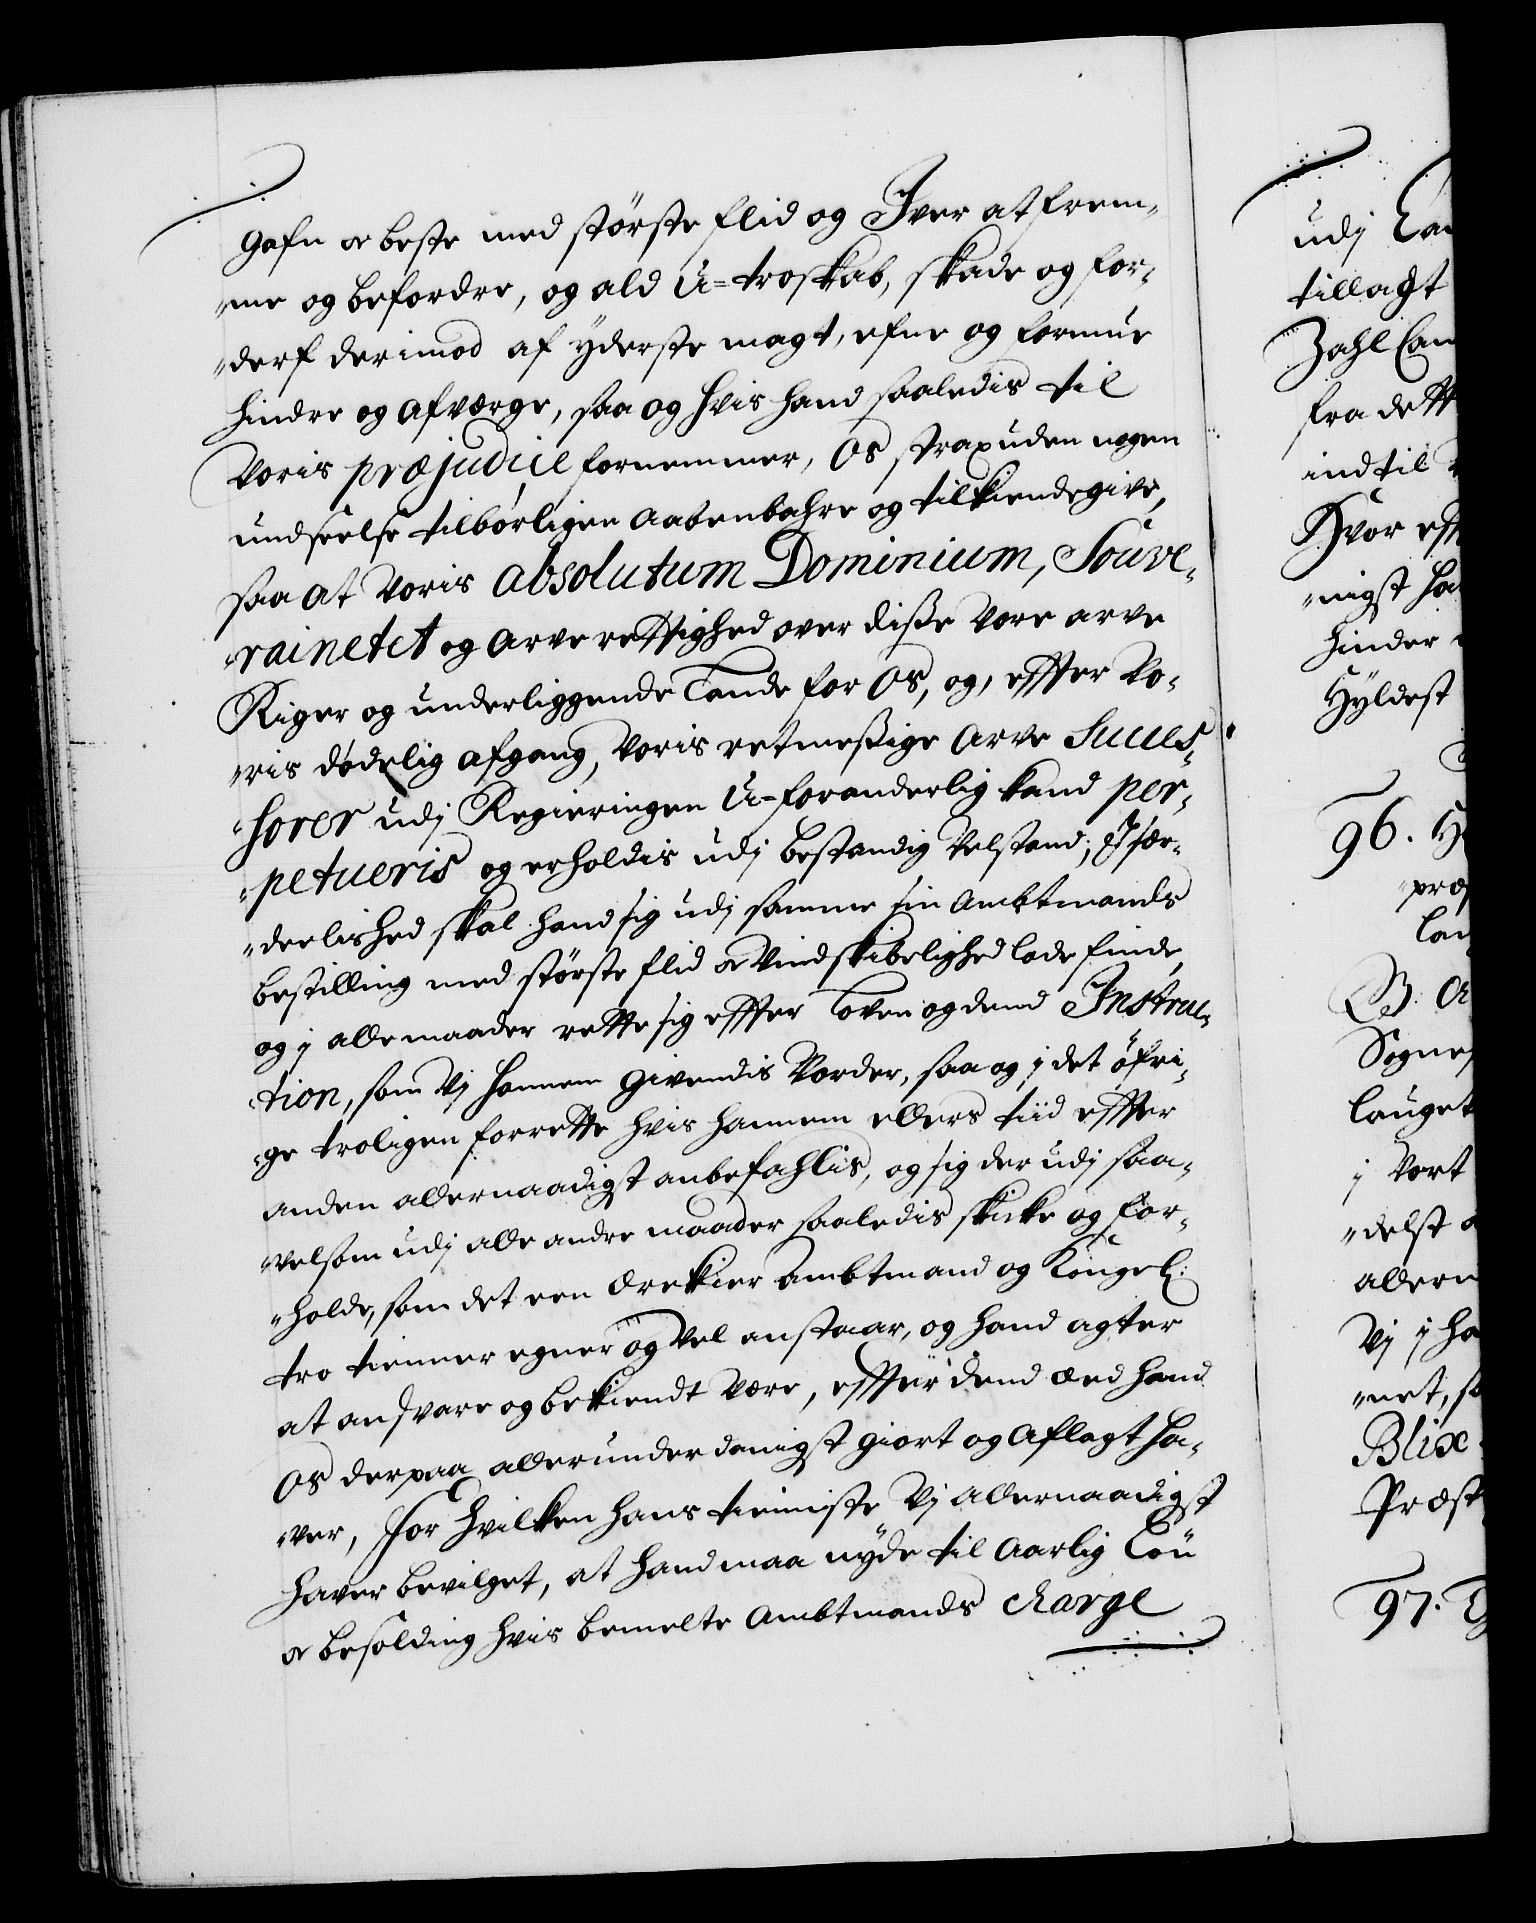 gafn oc beste med störste flid og Iver at frem¬
"me og befordre, og ald U=troskab, skade og for¬
"derf derimod af yderste magt, efne og formue
hindre og afværge, saa og hvis hand saaledis til
Voris præjudice fornemmer, Os strax uden nogen
undseelse tilbörligen aabenbahre og tilkiendegive,
saa at Voris absolutum Dominium, Souve¬
"rainetet og Arverettighed over disse Vore arve
Riger og underliggende Lande for Os, og, effter Vo¬
"ris dödelig afgang, Voris retmessige Arve Succes¬
"sorer udj Regieringen U=foranderlig kand per¬
"petueris og erholdis udj bestandig Velstand; I sær¬
"deelished skal hand sig udj samme sin Ambtmands
bestilling med störste flid oc Vindskibelighed lade finde,
og j alle maader rette sig effter Loven og dend Instruc¬
"tion, som Vj hannem givendis Vorder, saa og j det öfri¬
"ge troligen forrette hvis hannem ellers tiid effter
anden allernaadigst anbefahlis, og sig der udj saa¬
"velsom udj alle andre maader saaledis skicke og for¬
"holde, som det een ærekier Ambtmand og Kongel:
tro tienner egner og Vel anstaar, og hand agter
at andsvare og bekiendt være, effter dend Æed hand
Os derpaa allerunderdanigst giort og aflagt ha¬
"ver, For hvilken hans tienniste Vj allernaadigst
haver bevilget, at hand maa nyde til Aarlig Lön
oc besolding hvis bemelte Ambtmands charge
udj Lan
tillagt
Zahl Cam
fra dett
indtil
Hvor eff
"nigst ha
hinder
Hyldest
96. H
præ
Lan
B: A
Sogne
lauget
j Vort
"delst
allern
Vj j ha
"net, s
Blix
Præst
97.